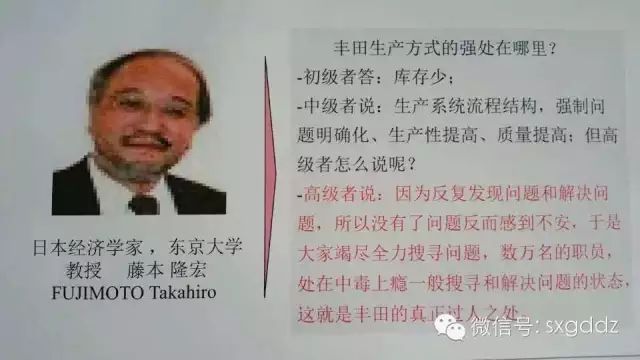 日本经济学家 ，东京大学
教授 藤本 隆宏
FUJIMOTO Takahiro
丰田生产方式的强处在哪里？
-初级者答：库存少；
-中级者说：生产系统流程结构，强制问
题明确化、生产性提高、质量提高；但高
级者怎么说呢？
-高级者说：因为反复发现问题和解决问
题，所以没有了问题反而感到不安，于是
大家竭尽全力搜寻问题，数万名的职员，
处在中毒上瘾一般搜寻和解决问题的状态，
这就是丰田的真正过人之处
微信号: sxgddz